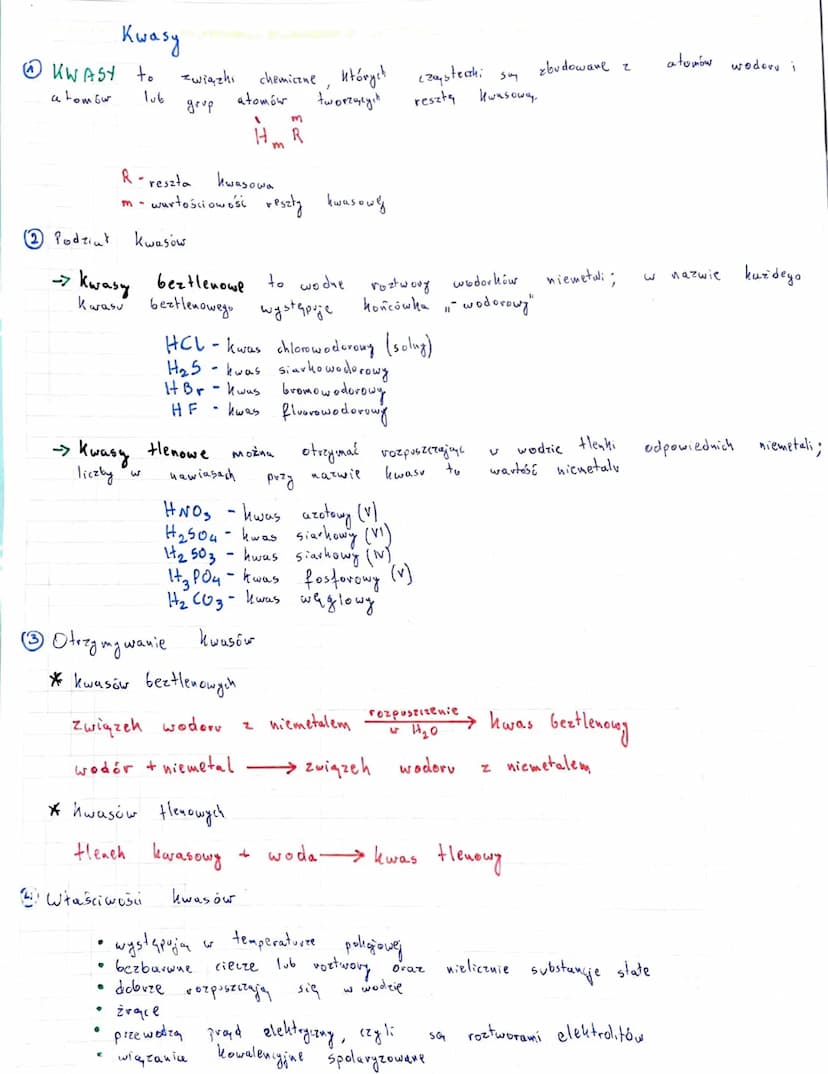 Kwasy
① KWASY to związki chemiczne, których cząsteczki są zbudowane z atomów wodoru i
atomów lub grup atomów tworzących resztę kwasową.
I m
HₘR
R - reszta kwasowa
m - wartościowość reszty kwasowej
② Podział kwasów
→ kwasy beztlenowe to wodne roztwory wodorków niemetali; w nazwie każdego
kwasu beztlenowego występuje końcówka „-wodorowy"
HCl - kwas chlorowodorowy (solny)
H₂S - kwas siarkowodorowy
HBr - kwas bromowodorowy
HF - kwas fluorowodorowy
→ kwasy tlenowe można otrzymać rozpuszczając w wodzie tlenki odpowiednich niemetali;
liczby w nawiasach przy nazwie kwasu to wartość niemetalu
HNO₃ - kwas azotowy (V)
H₂SO₄ - kwas siarkowy (VI)
H₂SO₃ - kwas siarkowy (IV)
H₃PO₄ - kwas fosforowy (V)
H₂CO₃ - kwas węglowy
③ Otrzymywanie kwasów
* kwasów beztlenowych
związek wodoru z niemetalem rozpuszczenie w H₂O → kwas beztlenowy
wodór + niemetal → związek wodoru z niemetalem
* kwasów tlenowych
tlenek kwasowy + woda → kwas tlenowy
④ Właściwości kwasów
• występują w temperaturze pokojowej
• bezbarwne ciecze lub roztwory oraz nielicznie substancje stałe
• dobrze rozpuszczają się w wodzie
• żrące
• przewodzą prąd elektryczny, czyli są roztworami elektrolitów
• wiązania kowalencyjne spolaryzowane